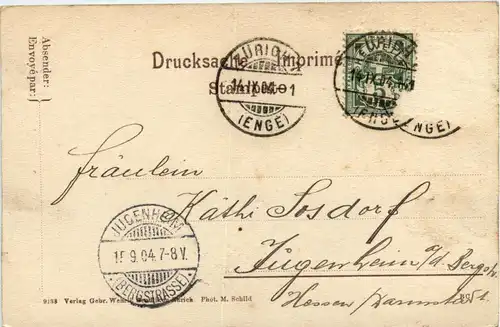 Absender:
Envoyé par:
Drucksache Imprimé
Stampa
ZÜRICH
14.IX.04.-1
(ENGE)
ZÜRICH
14.IX.04.
(ENGE)
5
Fräulein
Käthi Sosdorf
Jugenheim a/d Bergstr.
Hessen
JUGENHEIM
15.9.04.7-8V.
(BERGSTRASSE)
9158 Verlag Gebr. Zürich Phot. M. Schild